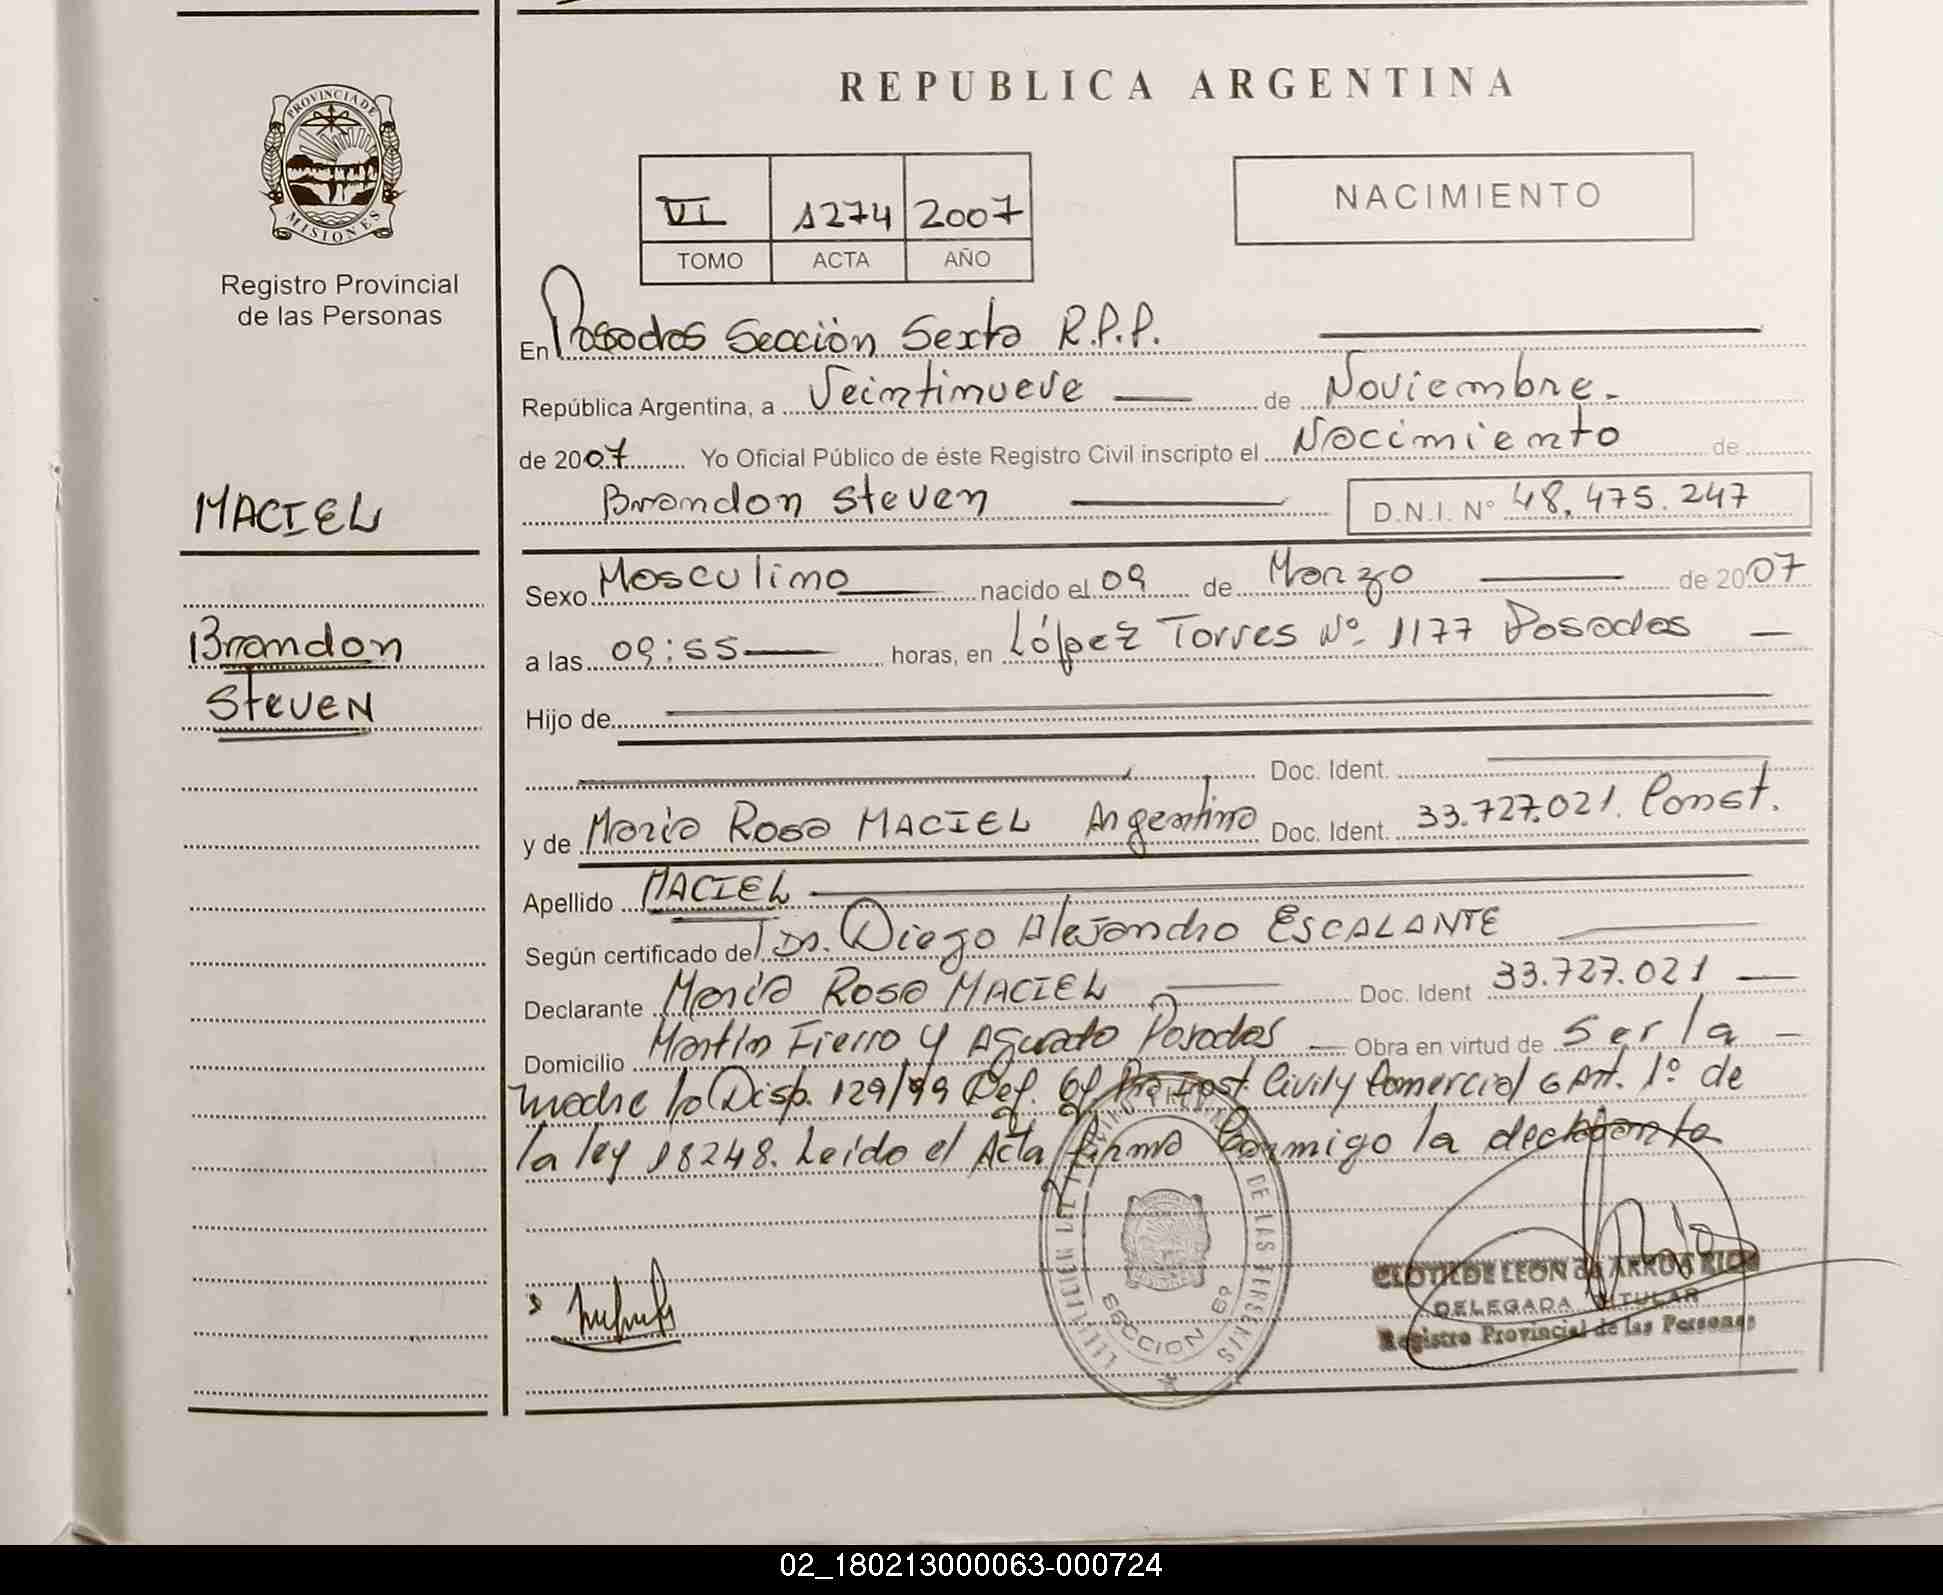 REPUBLICA ARGENTINA
PROVINCIA DE
MISIONES
Registro Provincial
de las Personas
NACIMIENTO
VI 1274 2007
TOMO ACTA AÑO
En Posadas Sección Sexta R.P.P.
República Argentina, a Veintinueve de Noviembre.
de 2007 Yo Oficial Público de éste Registro Civil inscripto el Nacimiento de
MACIEL
Brandon Steven D.N.I. N° 48.475.247
Sexo Masculino nacido el 09 de Marzo de 2007
Brandon
Steven
a las 09:55 horas, en López Torres Nº 1177 Posadas
Hijo de
Doc. Ident.
y de María Rosa MACIEL Argentina Doc. Ident. 33.727.021. Const.
Apellido MACIEL
Según certificado de Dr. Diego Alejandro ESCALANTE
Declarante María Rosa MACIEL Doc. Ident 33.727.021
Domicilio Martín Fierro y Aguado Posadas Obra en virtud de Ser la
madre Disp. 129/99 Def. Of. Inst. Civil y Comercial 6 Art. 1º de
la ley 18248. Leído el Acta firma Conmigo la declarante
DE LAS PERSONAS
SECCION 6º
CLOTILDE LEON de ARRUA
DELEGADA TITULAR
Registro Provincial de las Personas
02_180213000063-000724